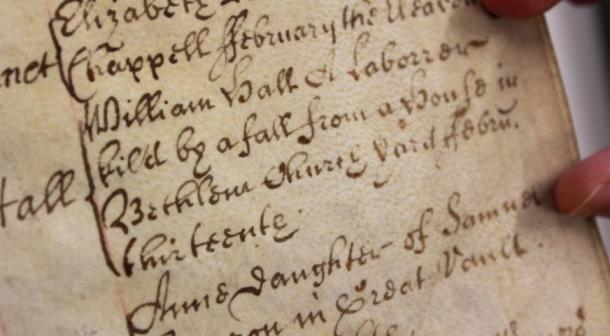 Elizabeth
nct Chappell ffebruary the
William Hall A Laborrer
kil'd by a fall from a House in
Hall Bethlem Church yard ffebru:
thirteenth.
Anne Daughter of Samuel
in Great Vault.